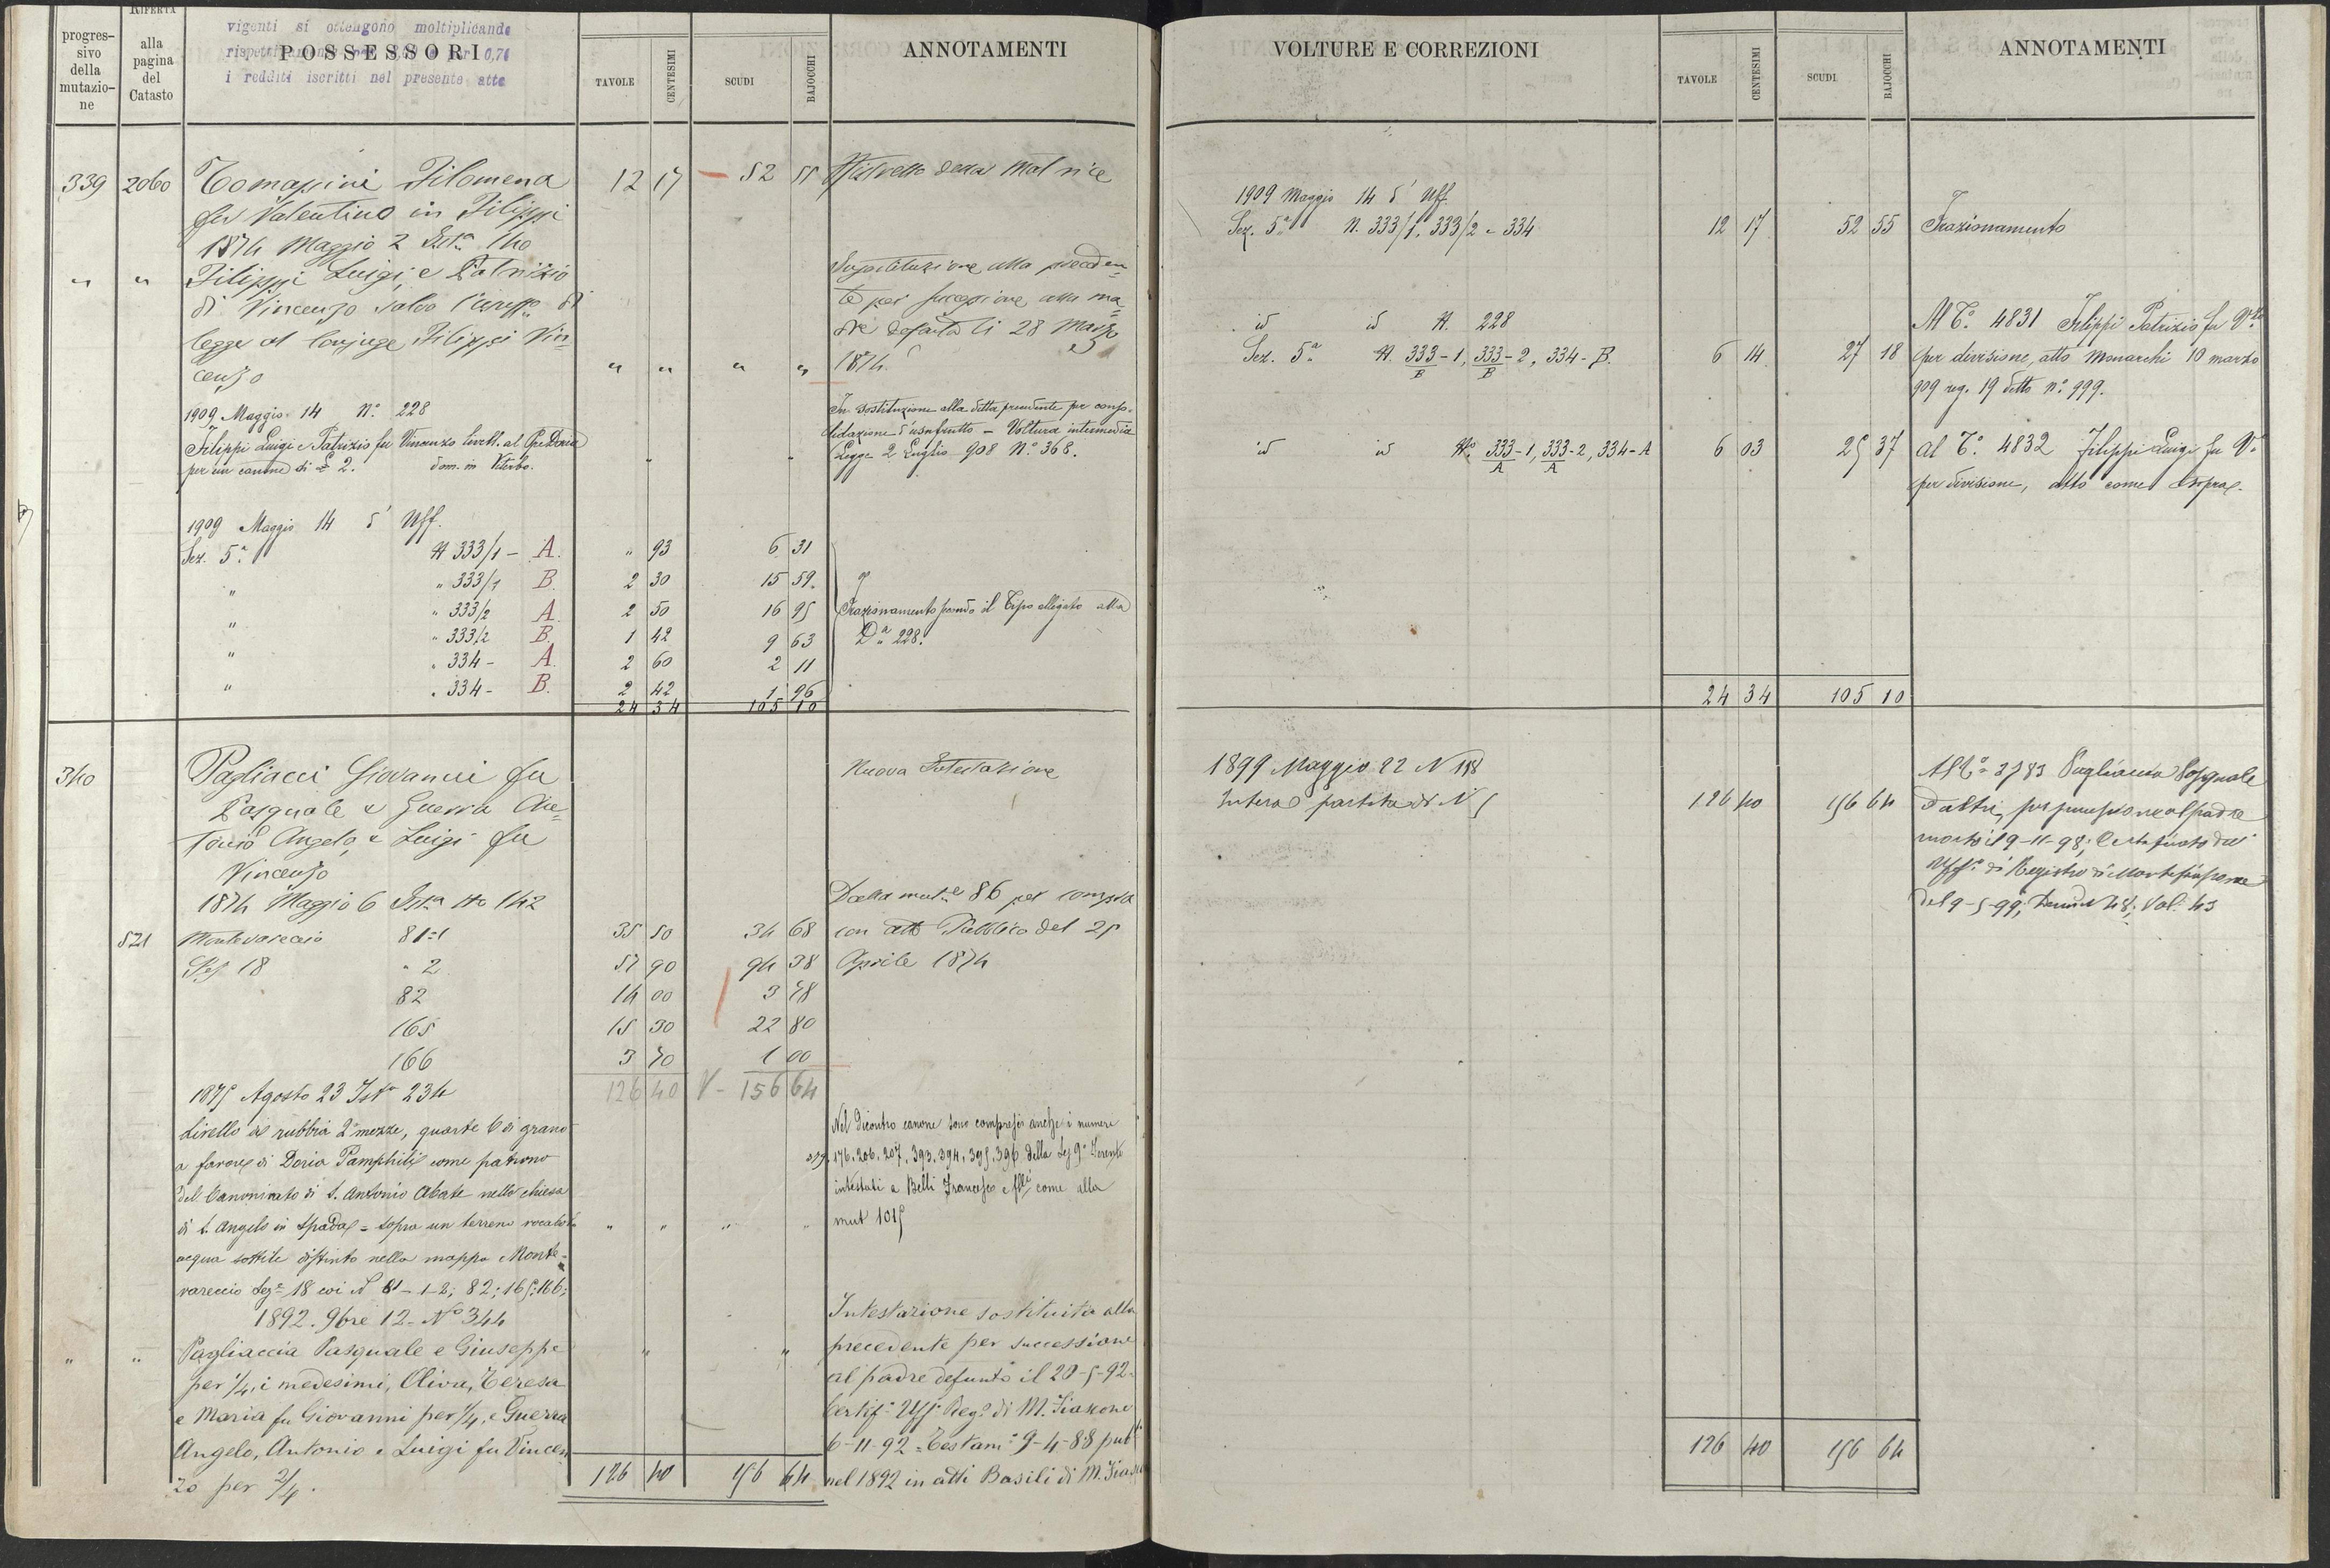 progres-
sivo
della
mutazio-
ne
RIFERTA
alla
pagina
del
Catasto
vigenti si ottengono moltiplicando
POSSESSORI
i redditi iscritti nel presente atto
TAVOLE
CENTESIMI
SCUDI
BAJOCCHI
ANNOTAMENTI
339 2060 Tomassini Filomena 12 17 52 55 Ristretto della Matrice
fu Valentino in Filippi
1874 Maggio 2 Ist.a 140
" " Filippi Luigi e Patrizio
di Vincenzo salvo l'usuff.o di
legge al Conjuge Filippi Vin-
cenzo " " " "
Sostituzione alla preceden-
te per successione alla ma-
dre defunta li 28 Marzo
1874.
1909 Maggio 14 N.o 228
Filippi Luigi e Patrizio fu Vincenzo livell. al
per un canone di £ 2. dom. in Viterbo.
In sostituzione alla ditta precedente per conso-
lidazione d'usufrutto - Voltura intermedia
Legge 2 Luglio 908 N.o 368.
1909 Maggio 14 d' Uff.
Sez. 5.a N 333/1 - A. " 93 6 31
" " 333/1 B. 2 30 15 59
" " 333/2 A 2 50 16 95
" " 333/2 B. 1 42 9 63
" " 334 - A. 2 60 2 11
" " 334 - B. 2 42 1 96
24 34 105 10
Frazionamento secondo il Tipo allegato alla
D.a 228.
340 Pagliacci Giovanni fu
Pasquale e Guerra An-
tonio Angelo e Luigi fu
Vincenzo
Nuova Intestazione
1874 Maggio 6 Ist.a No 142
521 Montevareccio 81=1 35 50 34 68
Sez 18 " 2 57 90 94 38
82 14 00 3 78
165 15 30 22 80
166 3 70 1 00
126 40 V - 156 64
Dalla mut.e 86 per compra
con atto Pubblico del 25
Aprile 1874
1875 Agosto 23 Ist.a 234
Livello di rubbia 2 mezze, quarte 6 di grano
a favore di Doria Pamphili come patrono
del Canonicato di S. Antonio Abate nella chiesa
di S. Angelo in Spada = sopra un terreno vocabolo
acqua sottile distinto nella mappa Monte-
vareccio Sez.e 18 coi N 81-1-2; 82; 165; 166; " " " "
Nel dicontro canone sono compresi anche i numeri
176. 206. 207. 393. 394. 395. 396 della Sez 9.a Ferento
intestati a Belli Francesco e flli come alla
mut 1015
1892. 9bre 12 - No 344
" " Pagliaccia Pasquale e Giuseppe " "
per 1/4, i medesimi, Oliva, Teresa
e Maria fu Giovanni per 1/4, e Guerra
Angelo, Antonio e Luigi fu Vincen
zo per 2/4. 126 40 156 64
Intestazione sostituita alla
precedente per successione
al padre defunto il 20-5-92 -
Certif.o Uff.o Reg.o di M.
6-11-92 = Testam.o 9-4-88 pub.
nel 1892 in atti Basili di M.
VOLTURE E CORREZIONI
TAVOLE
CENTESIMI
SCUDI
BAJOCCHI
ANNOTAMENTI
1909 Maggio 14 d' Uff.
Sez. 5.a N. 333/1, 333/2 e 334 12 17 52 55 Frazionamento
id id N. 228
Sez. 5.a N. 333-1/B, 333-2/B, 334-B. 6 14 27 18
Al T.o 4831 Filippi Patrizio fu V.zo
per divisione, atto Monarchi 10 marzo
909 reg. 19 detto n.o 999.
id id N.o 333-1/A, 333-2/A, 334-A 6 03 25 37
al T.o 4832 Filippi Luigi fu V.o
per divisione, atto come sopra.
24 34 105 10
1899 Maggio 22 N 198
Intera partita di N 5 126 40 156 64
Al T.o 3783 Pagliaccia Pasquale
ed altri, per successione al padre
morto il 9-11-98; Certificato dell'
Uff.o di Registro di Montefiascone
del 9-5-99, Vol. 43
126 40 156 64